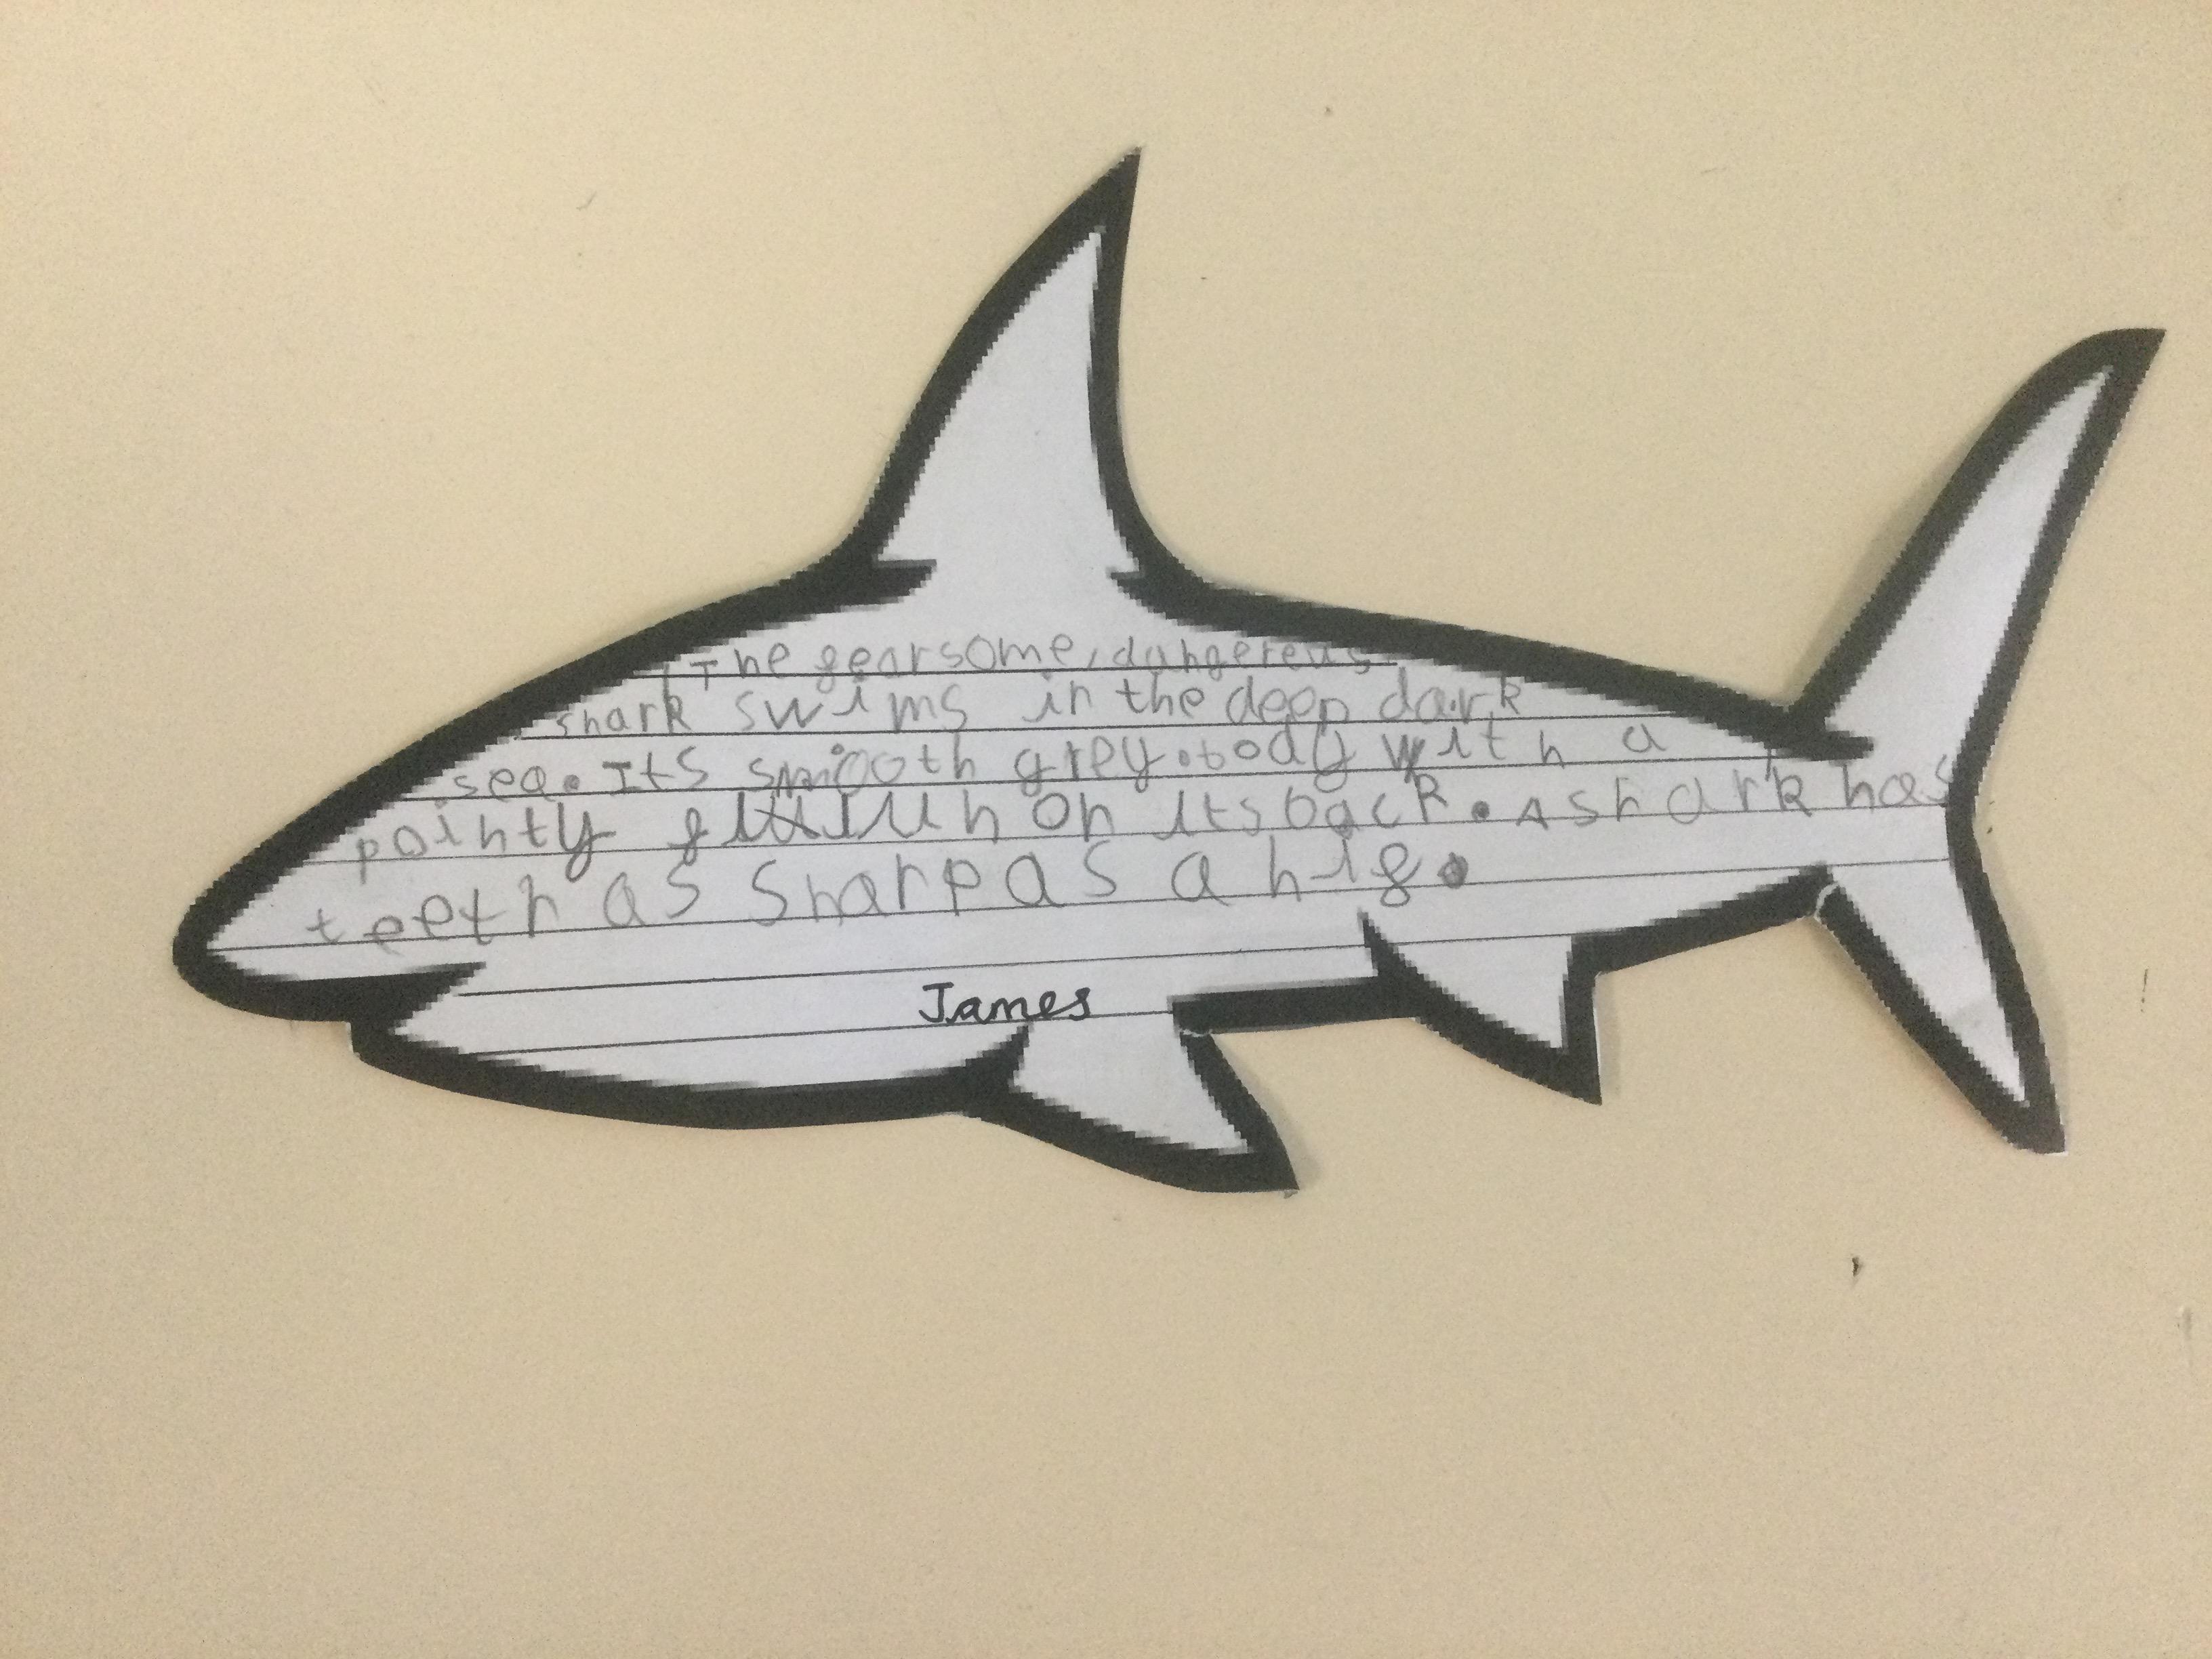 The fearsome, dangereus
shark swims in the deep dark
sea. Its smooth grey body with a
pointy on its back. A shark has
teeth as sharp as a
James